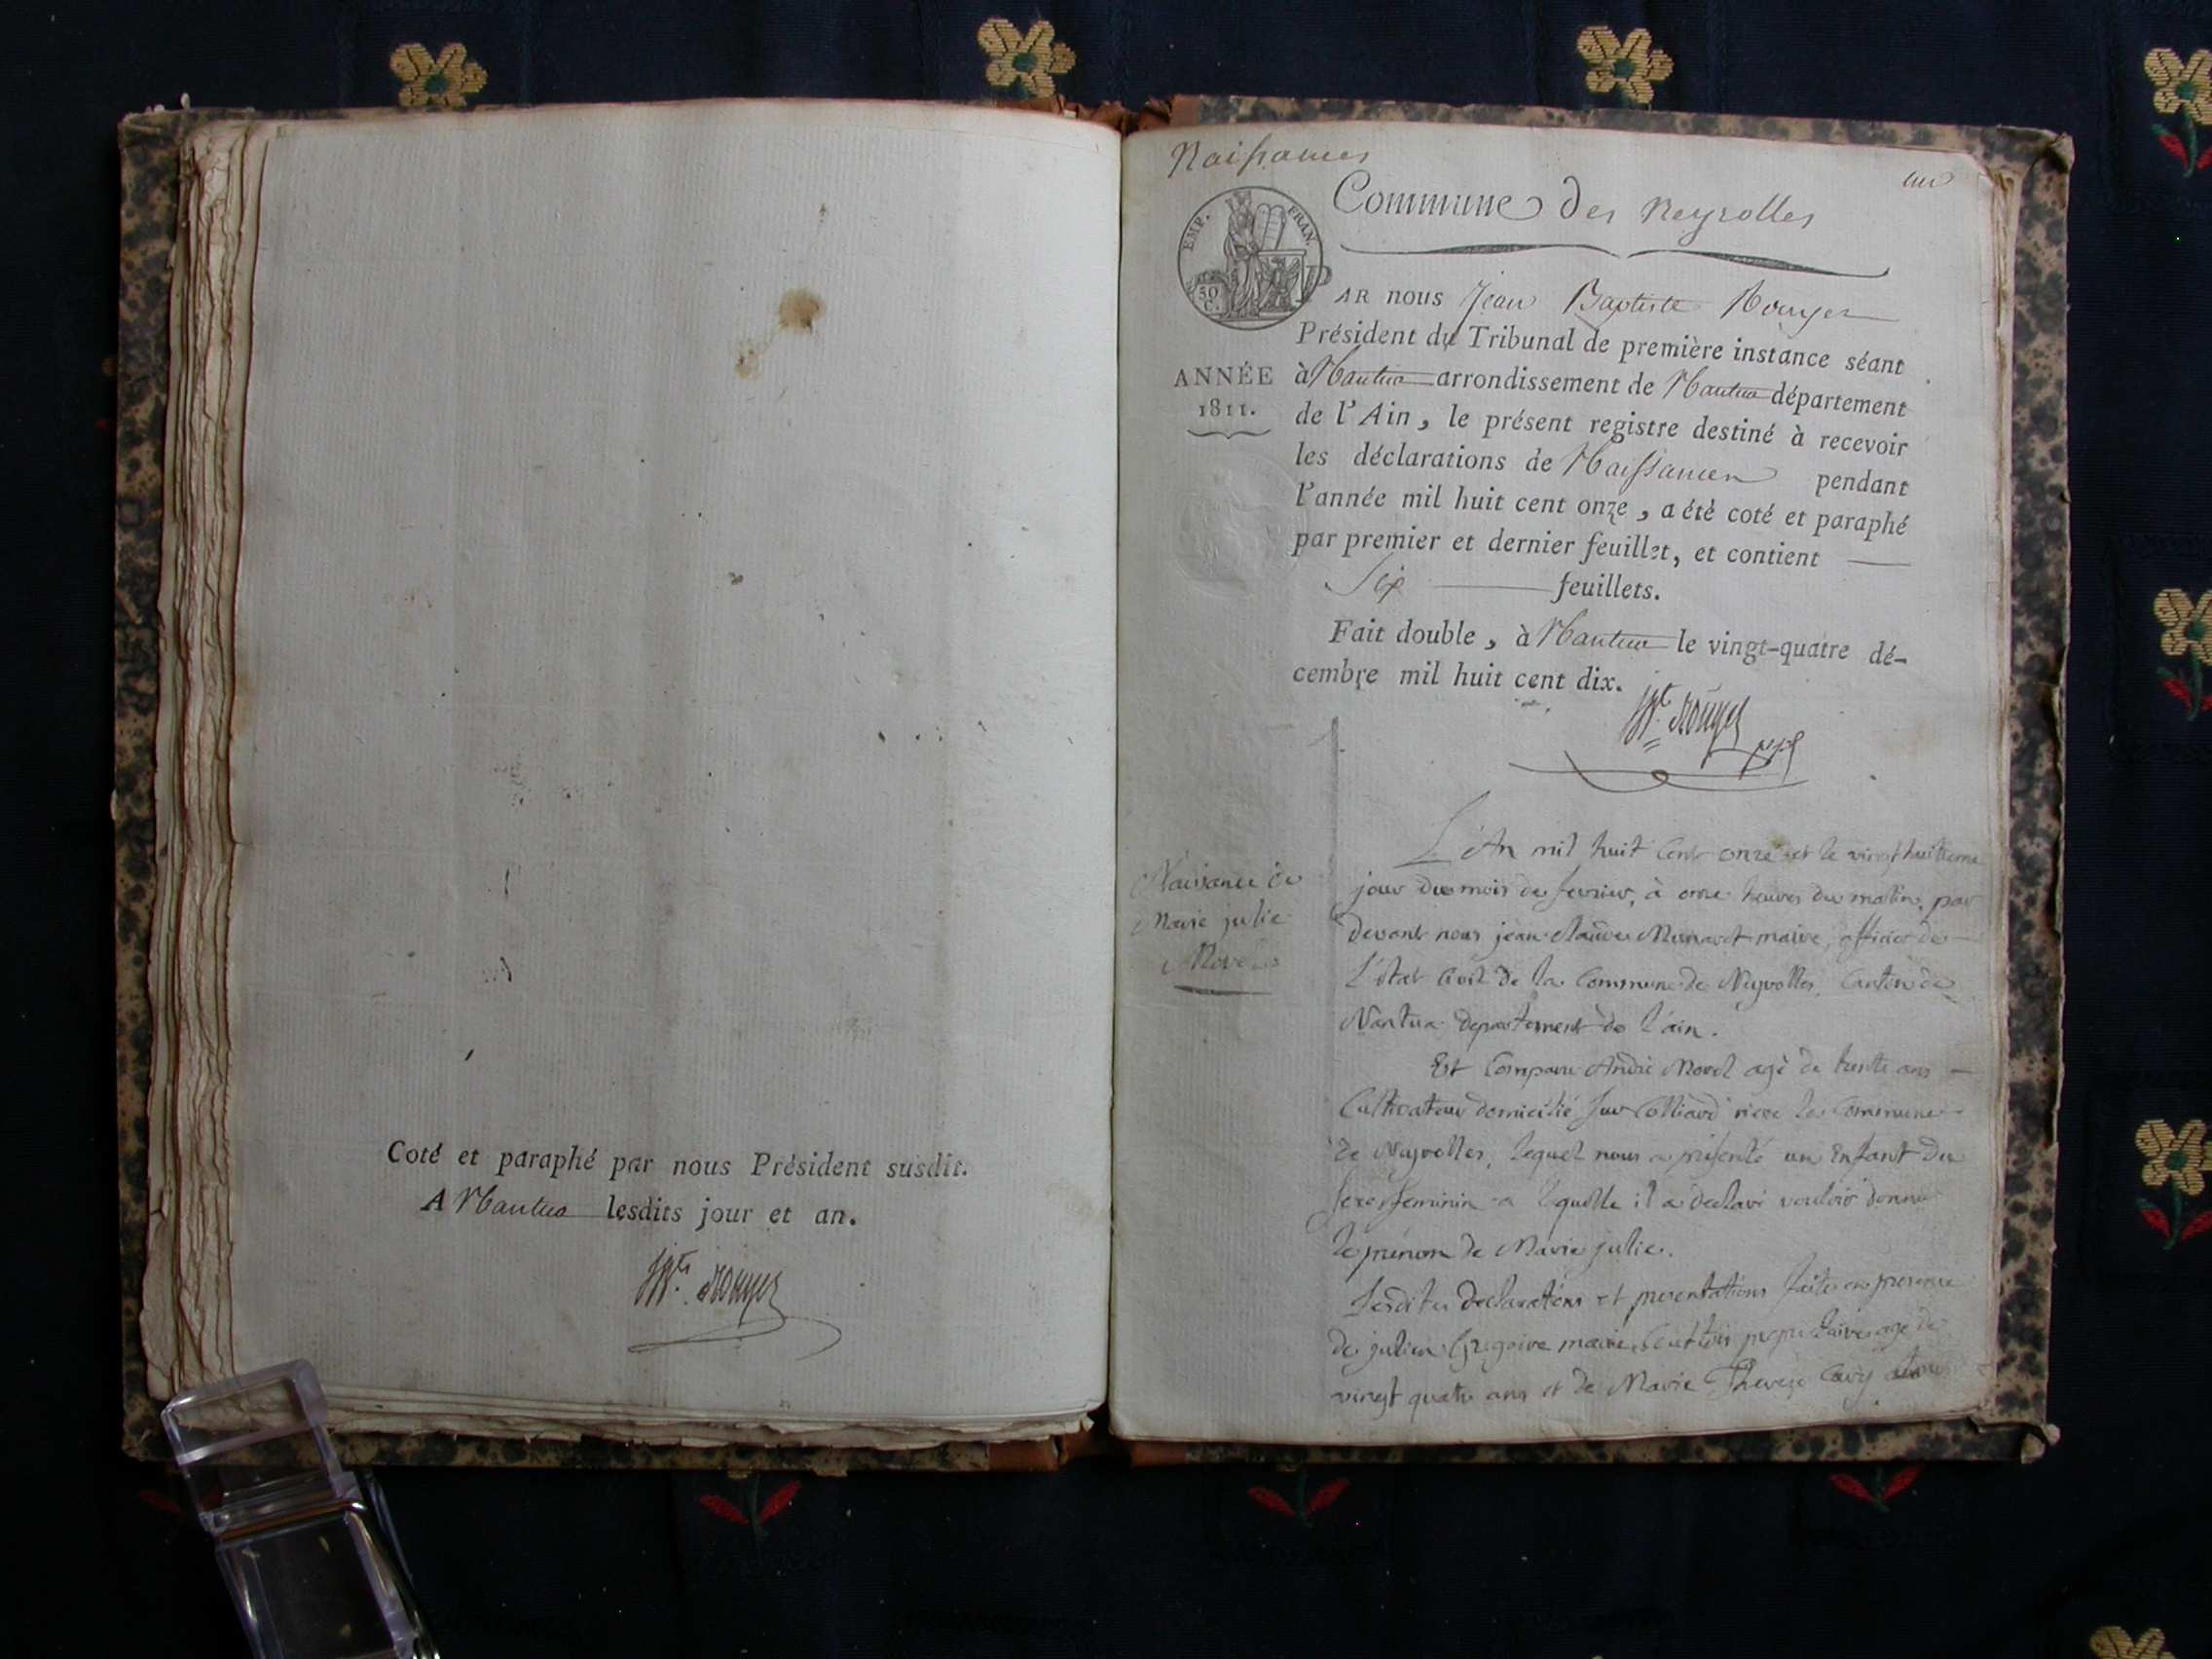 Coté et paraphé par nous Président susdit.
A Nantua lesdits jour et an.
Jn Bte Rouyer
Naissances
un
Commune des Neyrolles
EMP. FRAN.
50 C.
PAR nous Jean Baptiste Rouyer
Président du Tribunal de première instance séant
ANNÉE
1811.
à Nantua arrondissement de Nantua département
de l'Ain, le présent registre destiné à recevoir
les déclarations de Naissances pendant
l'année mil huit cent onze, a été coté et paraphé
par premier et dernier feuillet, et contient
Six feuillets.
Fait double, à Nantua le vingt-quatre dé-
cembre mil huit cent dix.
Rouyer
Naissance de
Marie julie
L'An mil huit Cent onze et le vingt huitieme
jour du mois de fevrier, à onze heures du matin, par
devant nous jean Claude maire, officier de
L'etat Civil de la Commune de Neyrolles, Canton de
Nantua departement de l'ain.
Est Comparu André agé de trente ans
Cultivateur domicilié sur Colliard la Commune
de Neyrolles, lequel nous a présenté un Enfant du
sexe feminin a laquelle il a declaré vouloir donner
le prénom de Marie julie.
Lesdites declarations et presentations faites en presence
de julien Gregoire propriétaire agé de
vingt quatre ans et de Marie Therese